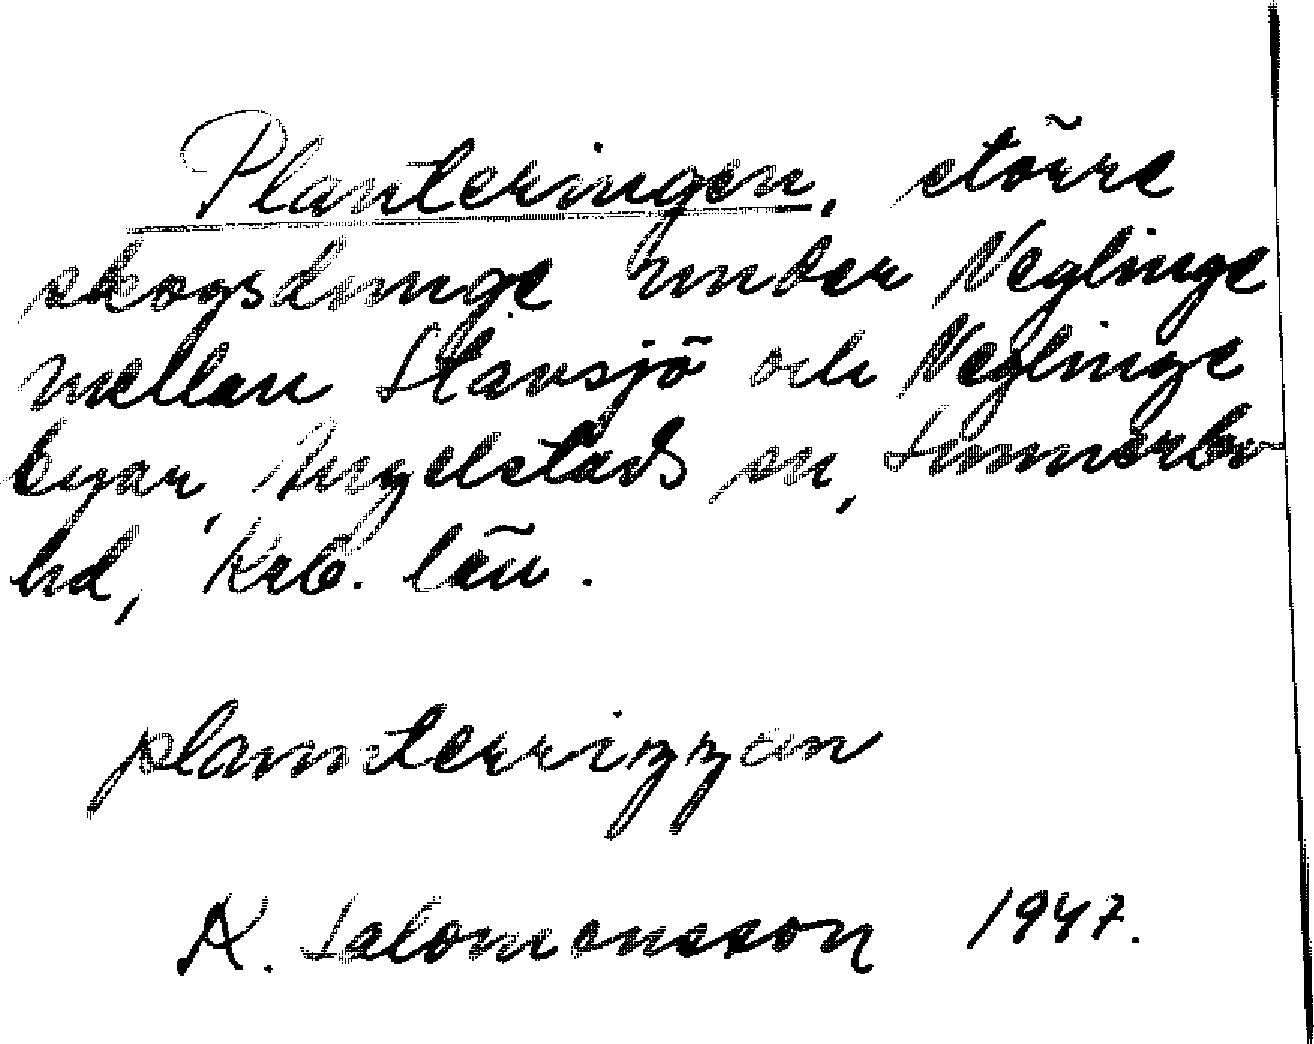 Planteringen, större
skogsdunge under Neglinge
mellan Stavsjö och Neglinge
byar, Angelstads sn, Sunnerbo
hd, Krb. län.
plannterriŋŋan
A. Salomonsson 1947.